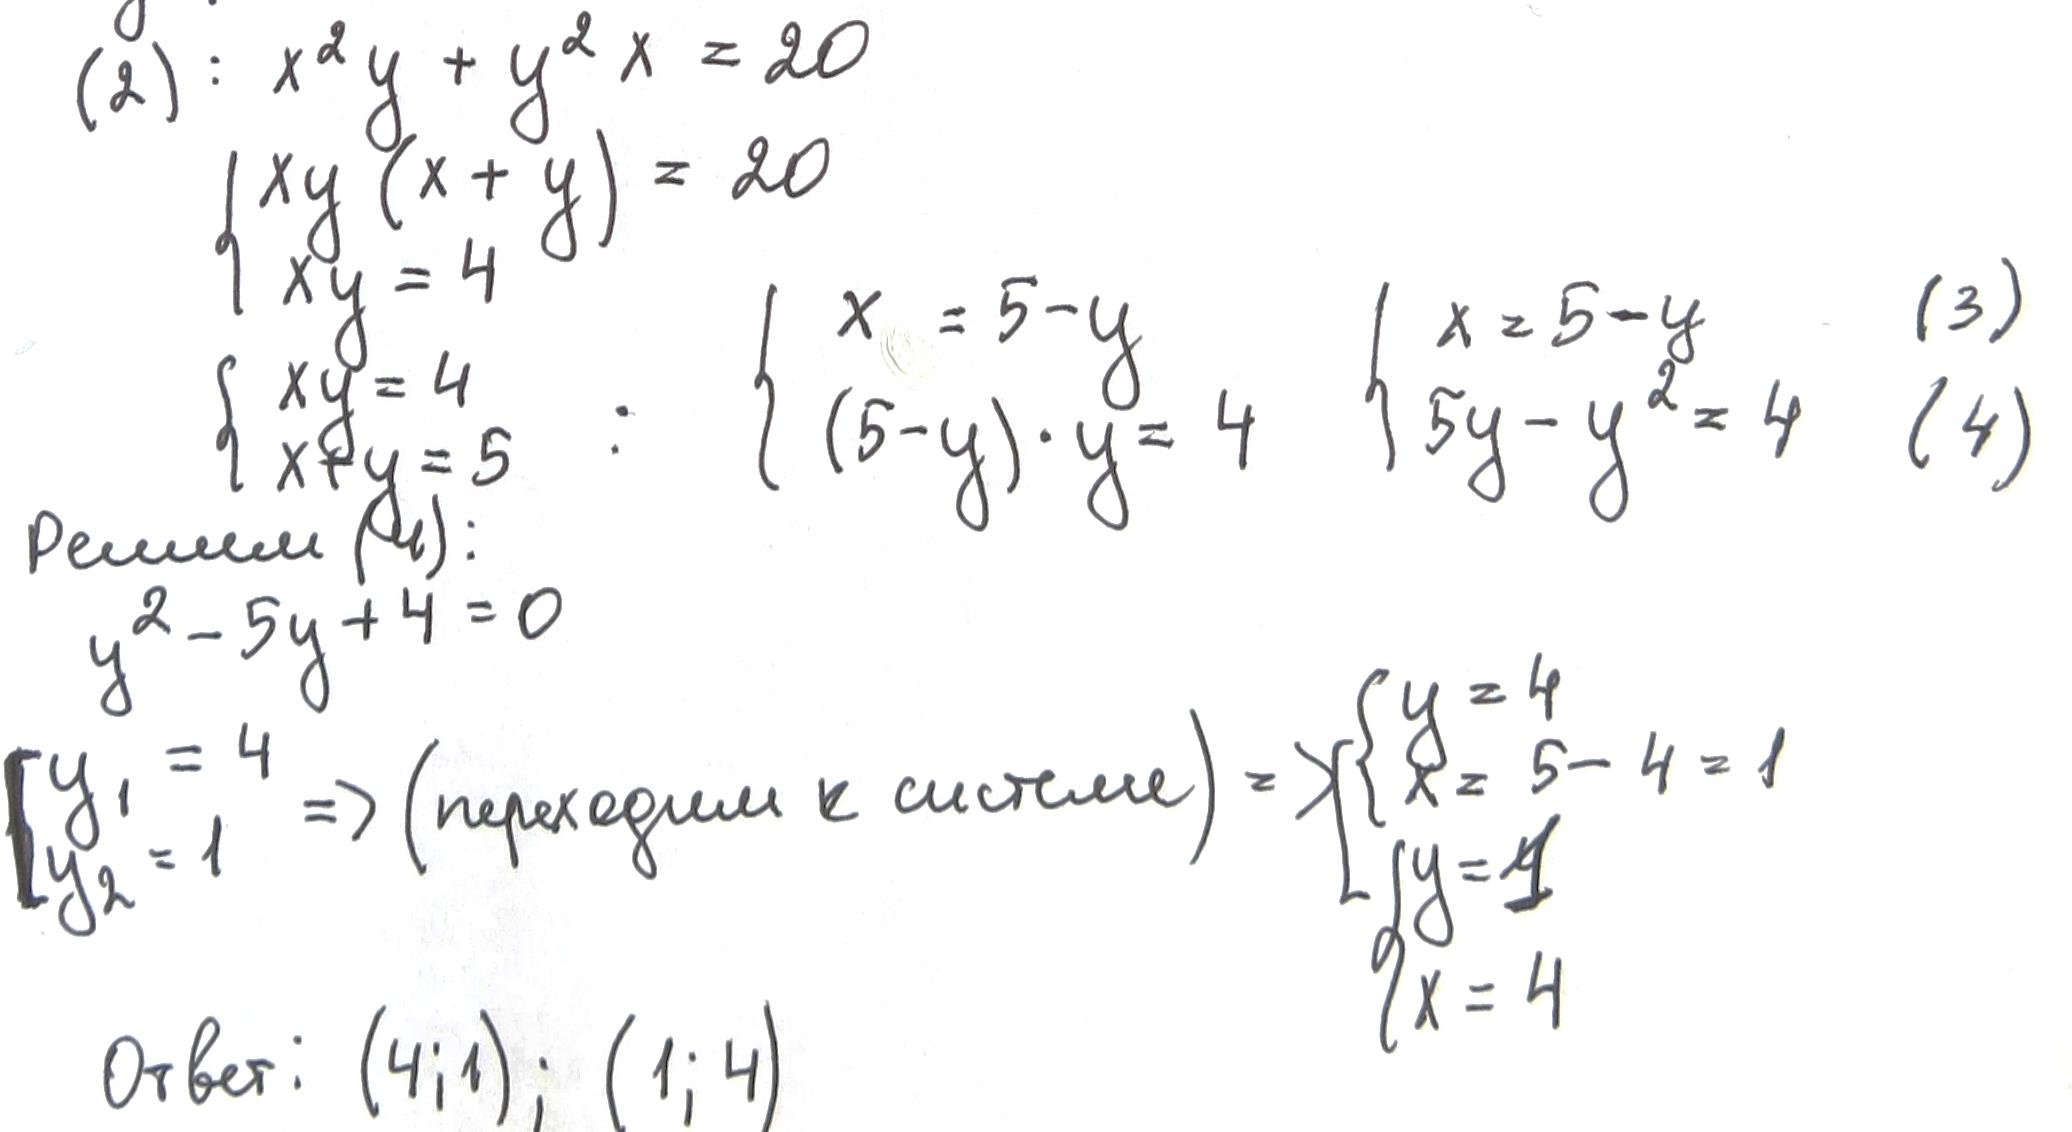 (2): x²y + y²x = 20
{ xy (x + y) = 20
xy = 4
{ xy = 4
x + y = 5
: { x = 5 - y
(5 - y) · y = 4
{ x = 5 - y (3)
5y - y² = 4 (4)
Решим (4):
y² - 5y + 4 = 0
[ y₁ = 4
y₂ = 1
=> (переходим к системе) =>
[ { y = 4
x = 5 - 4 = 1
{ y = 1
x = 4
Ответ: (4; 1); (1; 4)